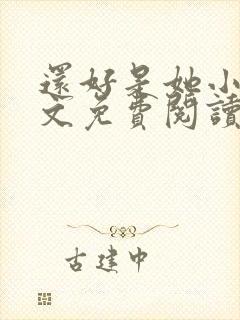 還好是她小
文免費閱讀
古建中